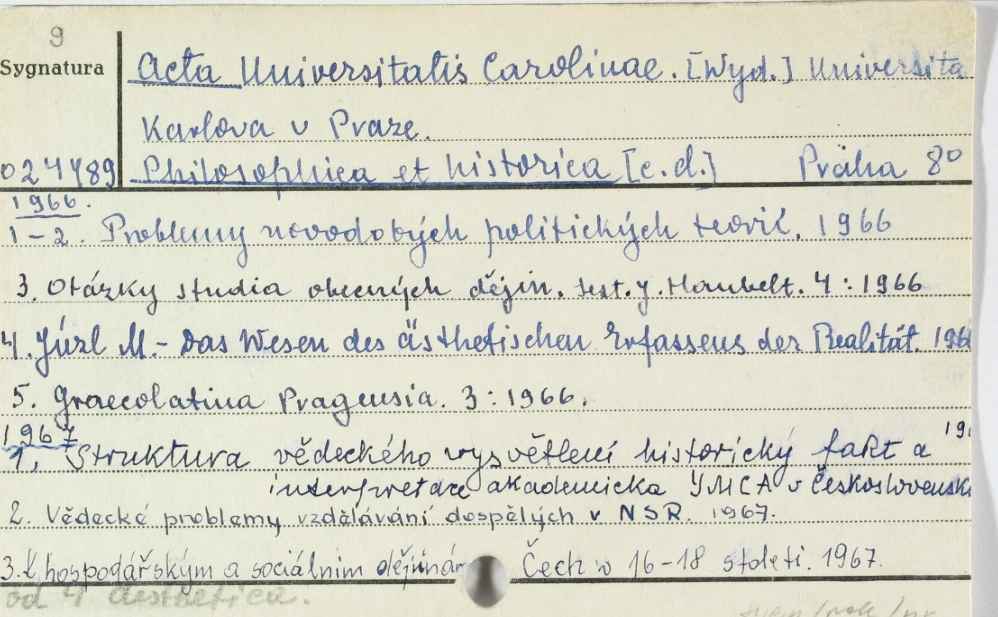 9
Sygnatura
Acta Universitatis Carolinae. [Wyd.] Universita
Karlova v Praze.
024489 Philosophica et historica [c.d.] Praha 8°
1966.
1-2. Problemy novodobých politických teorií. 1966
3. Otázky studia obecných dějin. sest. J. Haubelt. 4:1966
4. Júzl M.- Das Wesen des ästhetischen Erfassens der Realität. 196
5. Graecolatina Pragensia. 3:1966.
1967
1. Struktura vědeckého vysvětlení historický fakt a 19
interpretace akademicka YMCA v Československ
2. Vědecké problemy vzdělávání dospělých v NSR. 1967.
3. K hospodářským a sociálnim dějinám Čech v 16-18 století. 1967.
od 4 aesthetica.